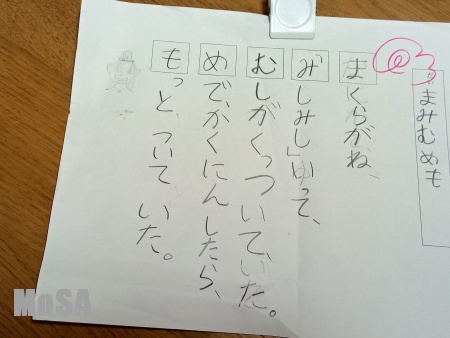 まみむめも
まくらがね、
「みしみし」いって、
むしがくっついて、いた。
めで、かくにんしたら、
もっと、ついていた。
MoSA